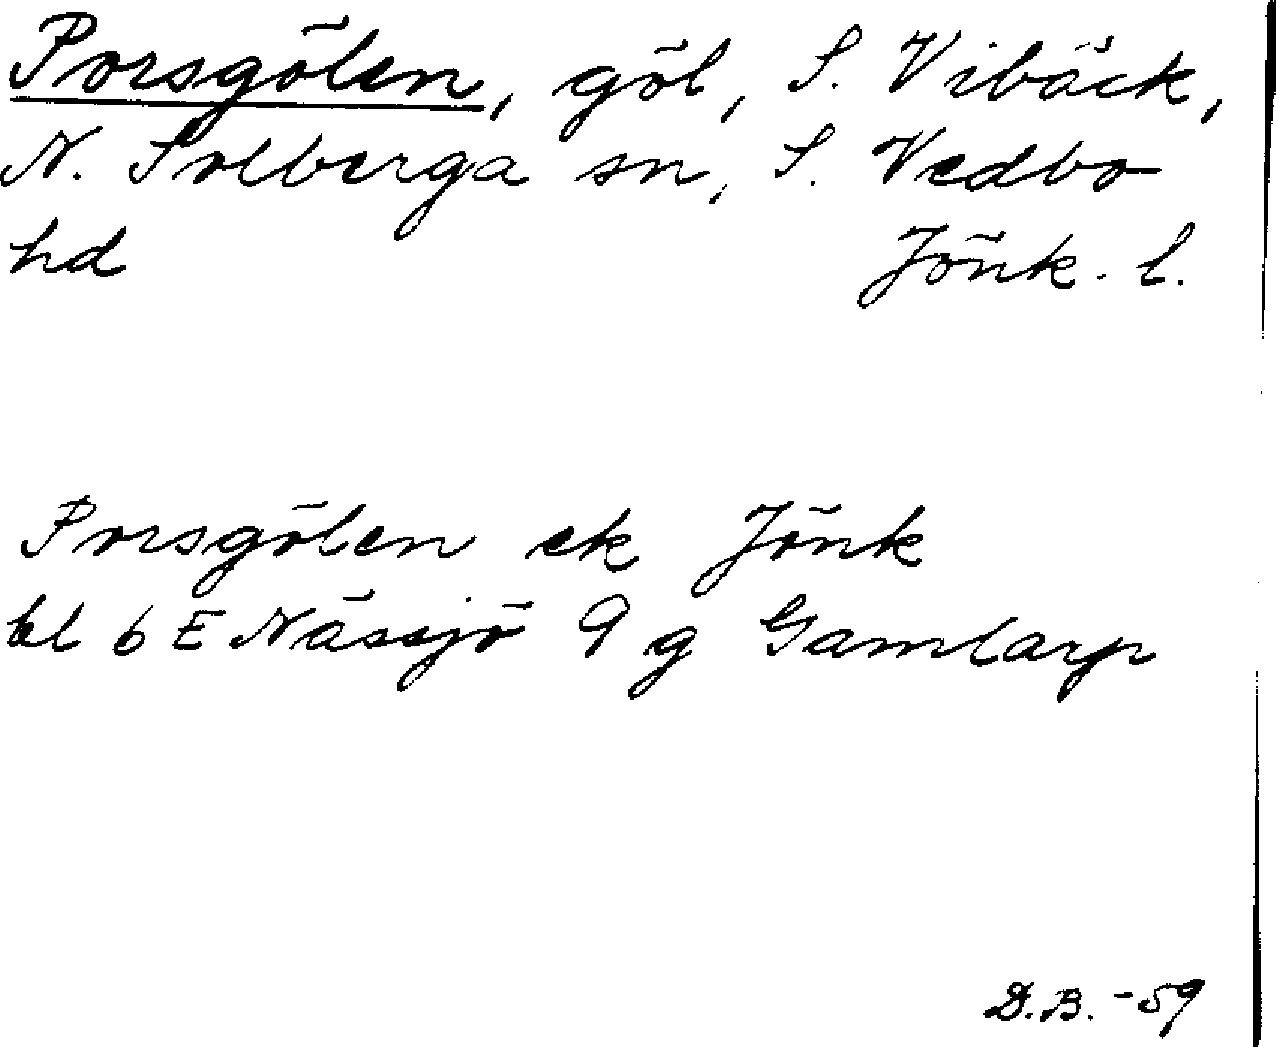 Porsgölen, göl, S. Vibäck,
N. Solberga sn, S. Vedbo
hd Jönk. l.
Porsgölen ek Jönk
bl 6 E Nässjö 9 g Gamlarp
D.B. -59